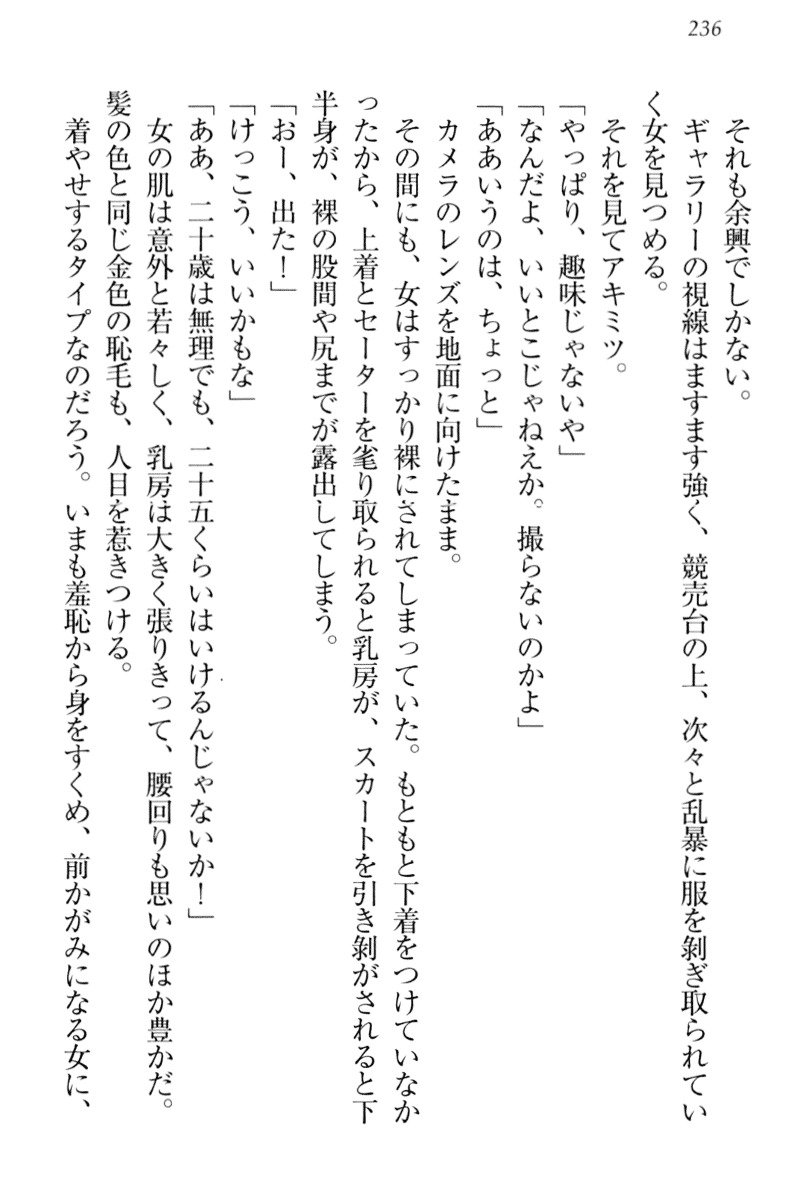 236
それも余興でしかない。
ギャラリーの視線はますます強く、競売台の上、次々と乱暴に服を剝ぎ取られてい
く女を見つめる。
それを見てアキミツ。
「やっぱり、趣味じゃないや」
「なんだよ、いいとこじゃねえか。撮らないのかよ」
「ああいうのは、ちょっと」
カメラのレンズを地面に向けたまま。
その間にも、女はすっかり裸にされてしまっていた。もともと下着をつけていなか
ったから、上着とセーターを毟り取られると乳房が、スカートを引き剝がされると下
半身が、裸の股間や尻までが露出してしまう。
「おー、出た！」
「けっこう、いいかもな」
「ああ、二十歳は無理でも、二十五くらいはいけるんじゃないか！」
女の肌は意外と若々しく、乳房は大きく張りきって、腰回りも思いのほか豊かだ。
髪の色と同じ金色の恥毛も、人目を惹きつける。
着やせするタイプなのだろう。いまも羞恥から身をすくめ、前かがみになる女に、